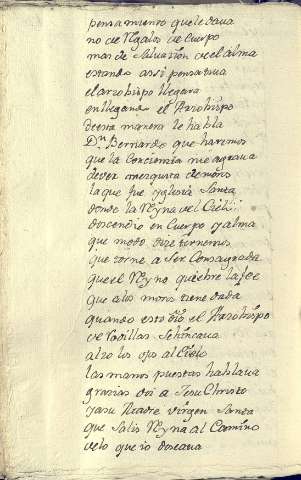 pensamiento que le dava
no de Regalos de cuerpo
mas de Saluazion de el alma
estando assi pensatiua
el arzobispo llegara
en llegando el Arzobispo
desta manera le habla
Dn Bernardo que haremos
que la conciencia me agraua
de ver mezquita de moros
la que fue yglesia Santa
donde la Reyna del Cielo
descendio en Cuerpo y alma
que modo dize ternemos
que torne a Ser Consagrada
que el Reyno quiebre la fee
que a los moros tiene dada
quando esto oio el Arzobispo
de rodillas Se hincaua
alzo los ojos al Cielo
las manos puestas hablaua
gracias doi a Jesu Christo
y a su Madre virgen Santa
que Salis Reyna al Camino
de lo que io deseaua